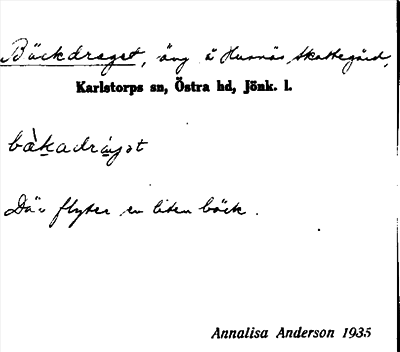 Bäckdraget, äng å Husnäs Skattegård,
Karlstorps sn, Östra hd, Jönk. l.
bàkadrá̤gət
Där flyter en liten bäck.
Annalisa Anderson 1935